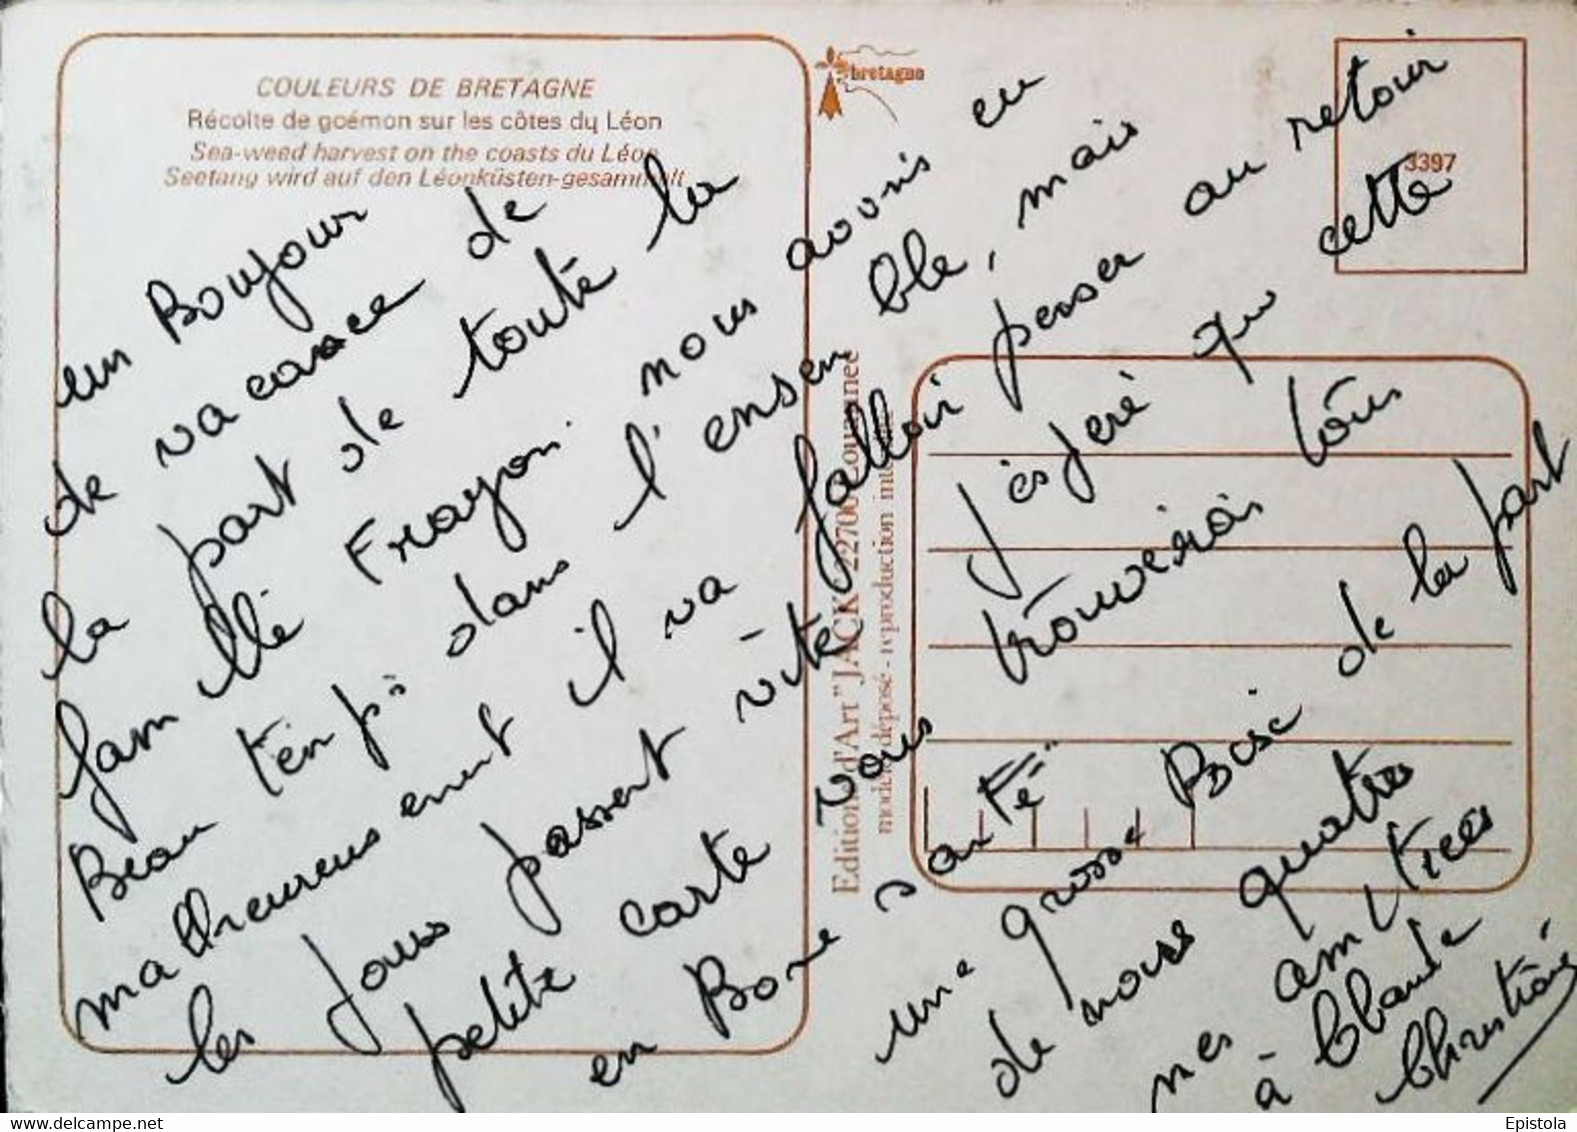 COULEURS DE BRETAGNE
Récolte de goémon sur les côtes du Léon
Sea-weed harvest on the coasts du Léon
Seetang wird auf den Léonküsten-gesammelt
bretagne
3397
Editions d'Art "JACK" 22700 Louannec
modèle déposé - reproduction inter
un Bonjour
de vacance de
la part de toute la
famillé Frayon. nous avons eu
Beau temps dans l'ensemble, mais
malheureusement il va falloir penser au retour
les jous passent vite, j'espére que cette
petite carte vous trouverais tous
en Bone santé
une grosse Bise de la part
de nous quatres
mes amitiees
à Claude
Christiane
Epistola